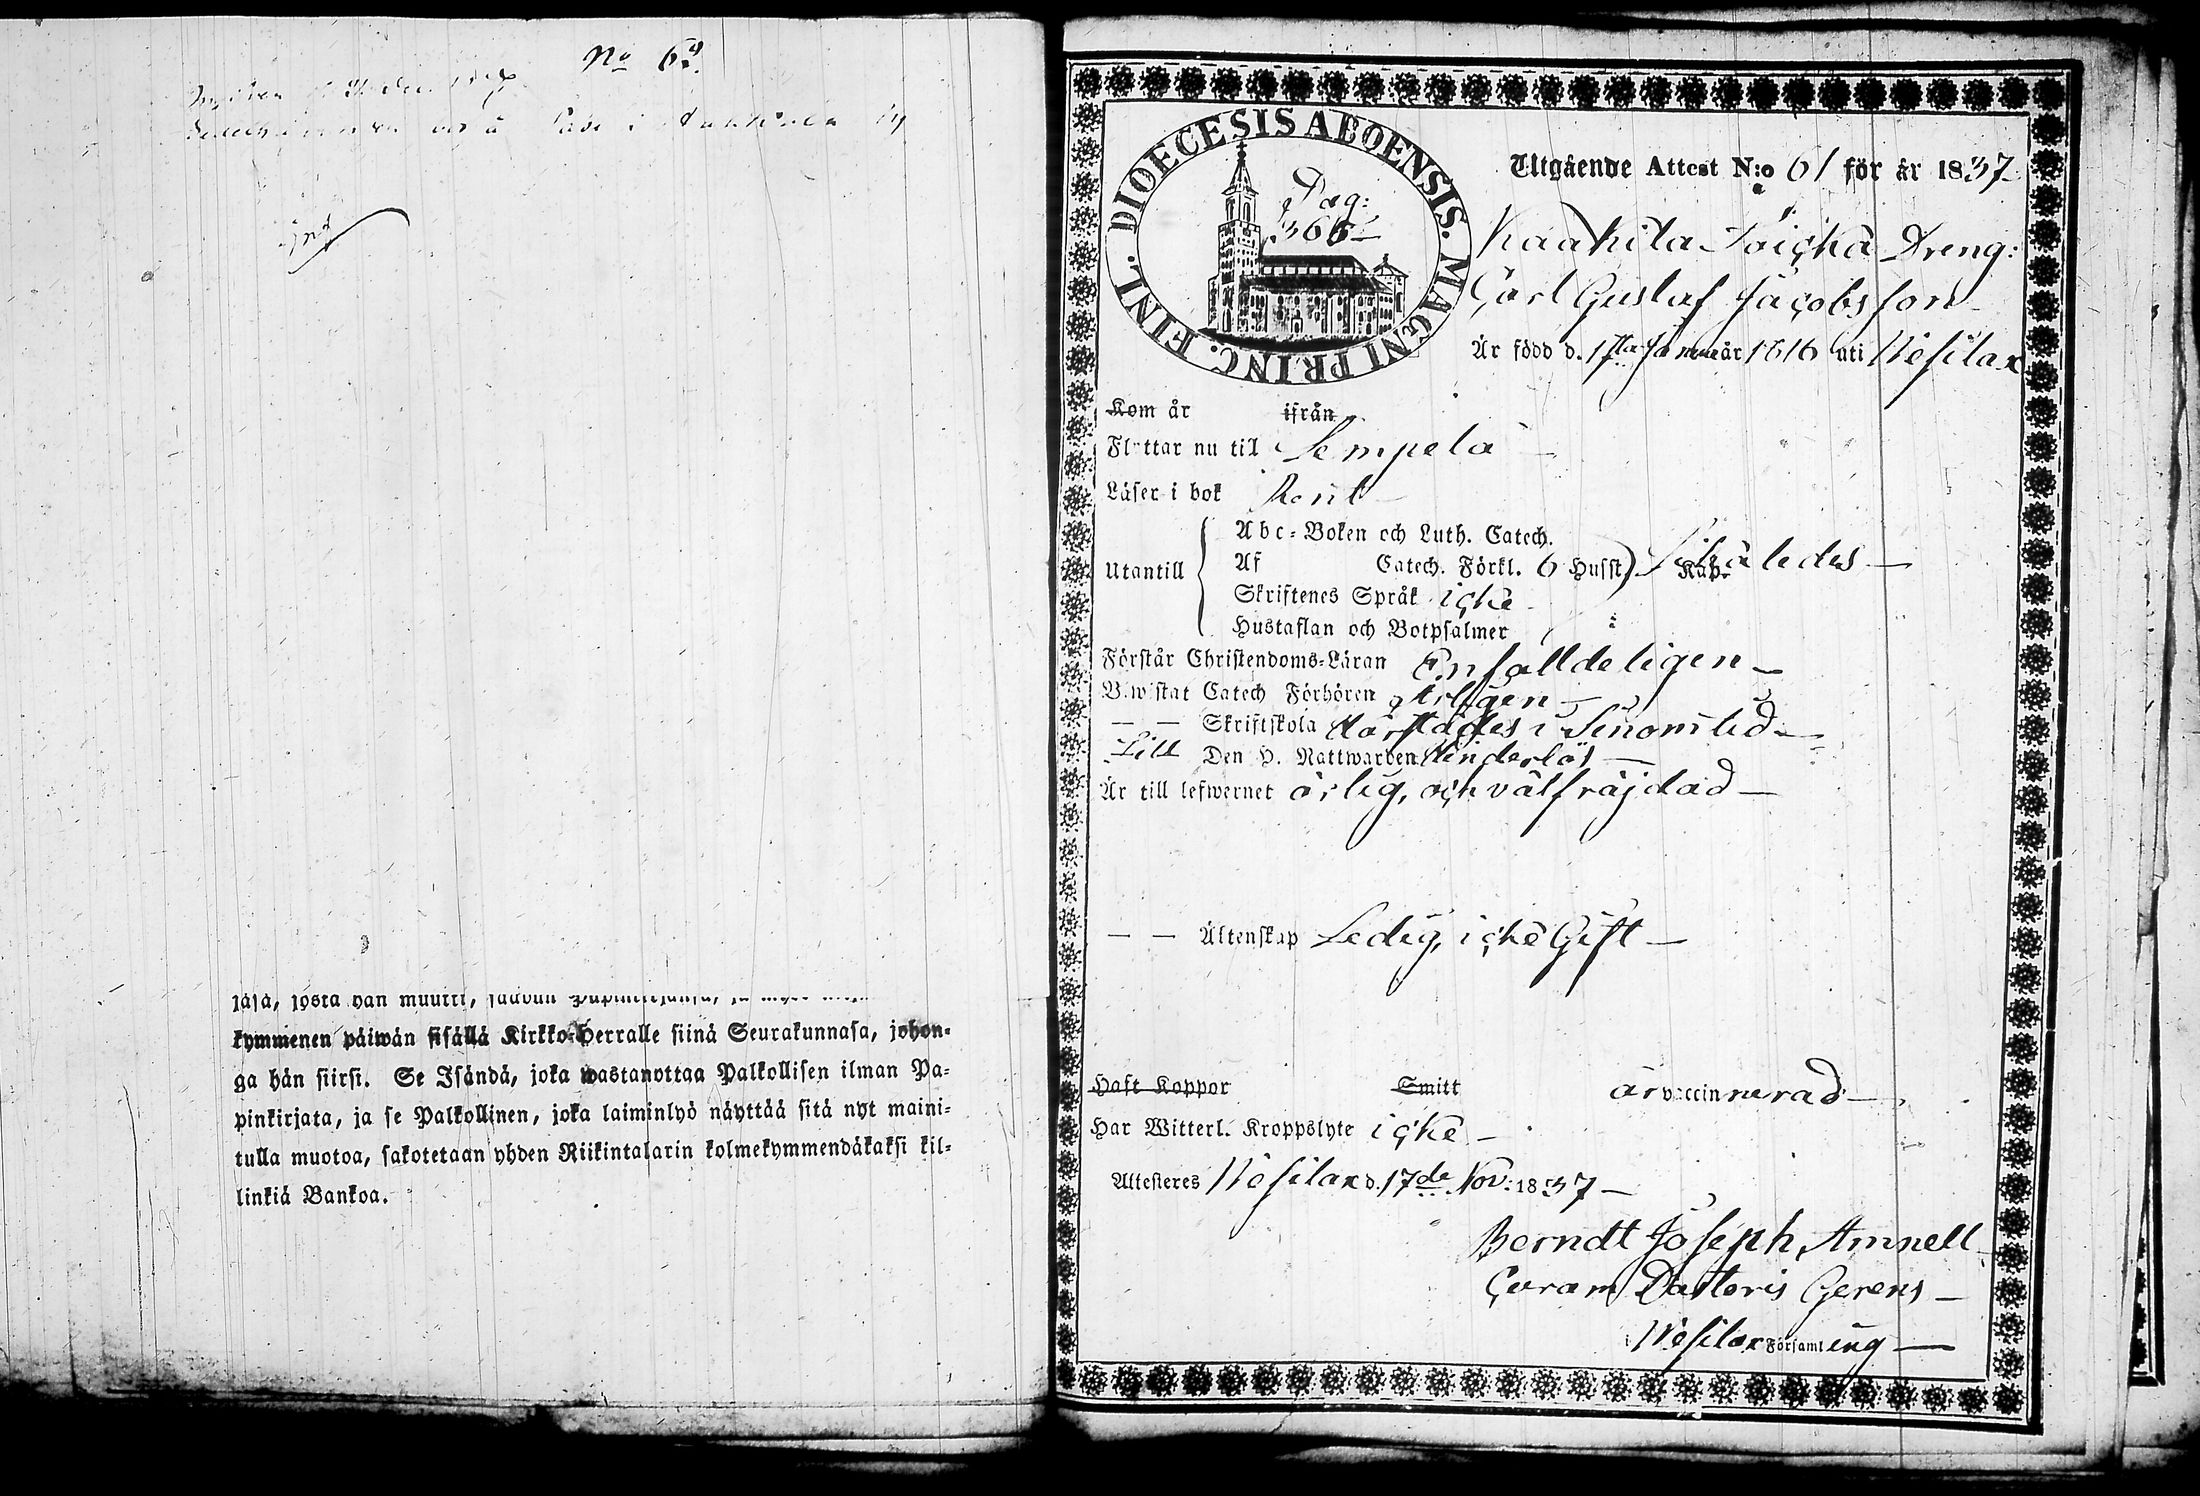 No 62.
jasa, josta hän muutti,
kymmenen päiwän sisällä Kirkko-Herralle siinä Seurakunnasa, johon-
ga hän siirsi. Se Isändä, joka wastanottaa Palkollisen ilman Pa-
pinkirjata, ja se Palkollinen, joka laiminlyö näyttää sitä nyt maini-
tulla muotoa, sakotetaan yhden Riikintalarin kolmekymmendäkaksi kil-
linkiä Bankoa.
DIOECESIS ABOENSIS. MAGNI PRINC. FINL.
Pag:
366
Utgående Attest N:o 61 för år 1837
Kaakila Dreng:
Carl Gustaf Jacobsson
Är född d. 17 Januar 1816 uti Wesilax
Kom år ifrån
Flyttar nu til Lempela
Läser i bok Rent
Utantill
Abc-Boken och Luth. Catech.
Af Catech. Förkl. 6 Husst. Kap. Likaledes
Skriftenes Språk icke
Hustaflan och Botpsalmer
Förstår Christendoms-Läran Enfalldeligen
Biwistat Catech Förhören Årligen
— — Skriftskola därstädes i Sinom tid
Till Den H. Nattwarden Hinderlös
Är till lefwernet ärlig, och välfräjdad
— — Äktenskap Ledig, icke Gift
Haft Koppor Smitt är vaccinnerad
Har Witterl. Kroppslyte icke
Attesteres Wesilax d. 17de Nov: 1837
Berndt Joseph Amnell
Curam Pastoris Gerens
i Wesilax Församling